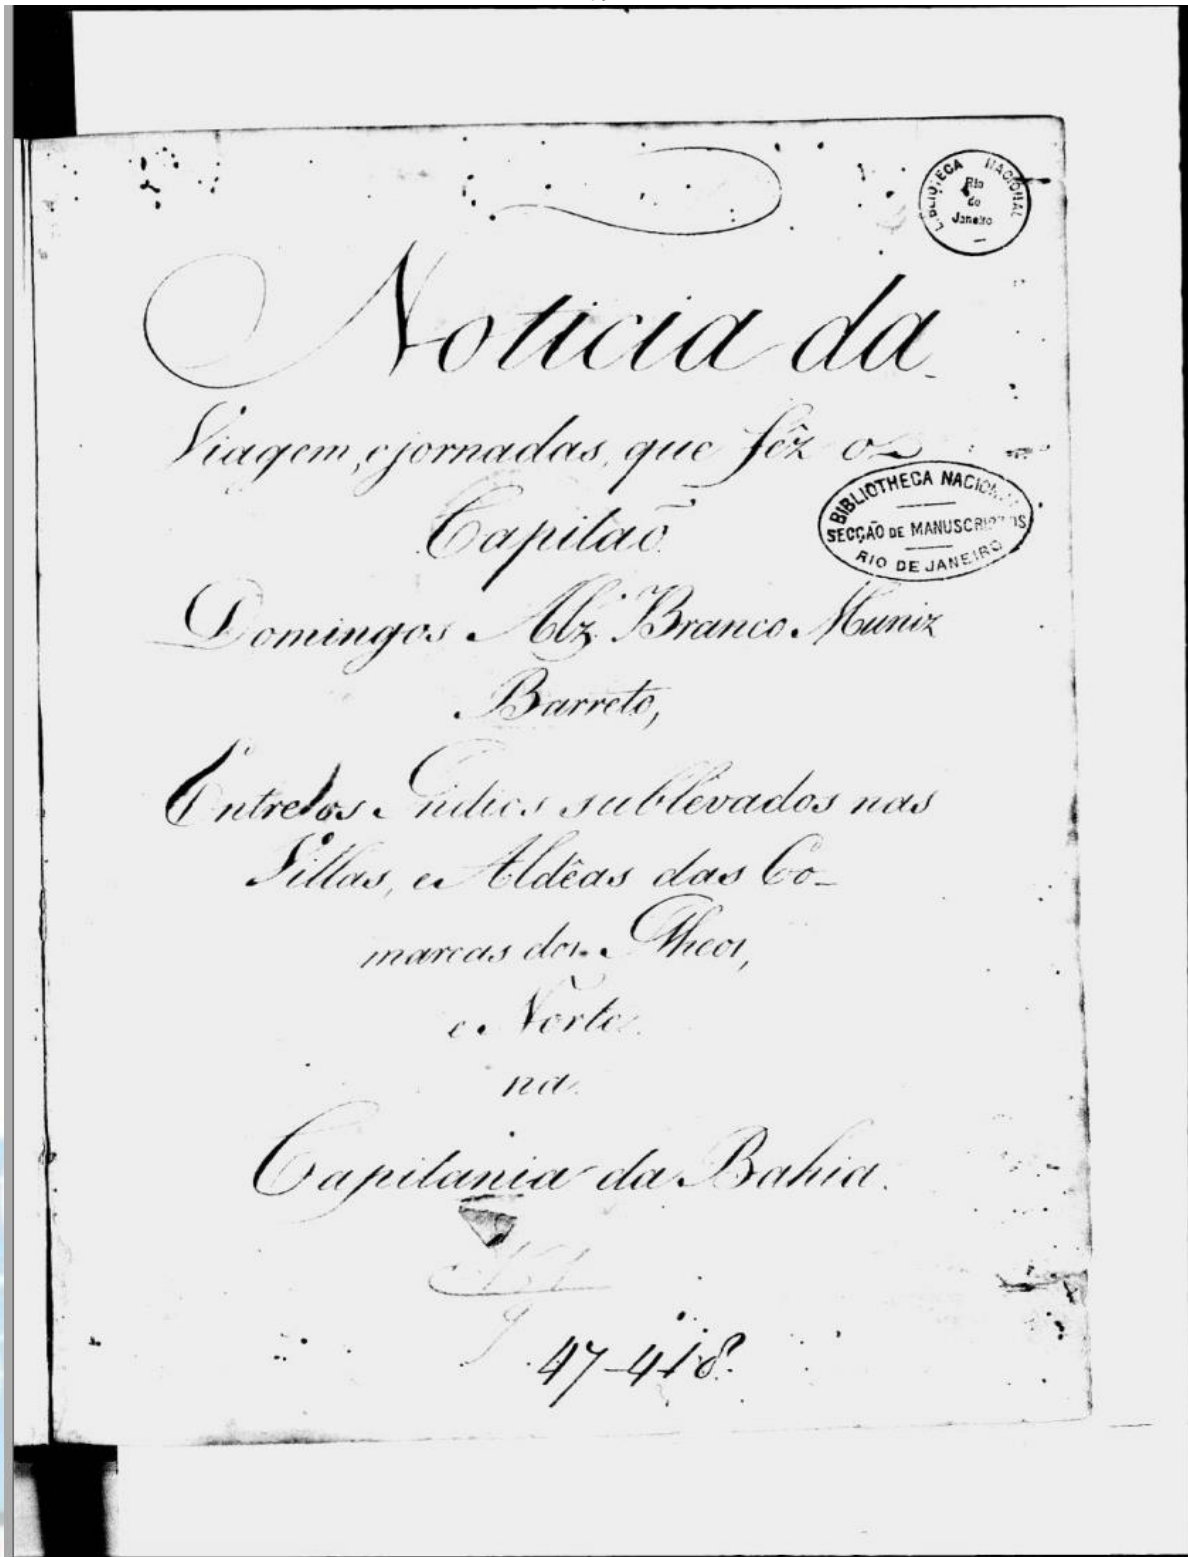 BIBLIOTECA NACIONAL
Rio
de
Janeiro
Noticia da
Viagem, e jornadas, que fêz o
BIBLIOTHECA NACIONAL
SECÇÃO DE MANUSCRIPTOS
RIO DE JANEIRO
Capitaõ
Domingos Alz. Branco Muniz
Barreto,
Entre os Indios sublevados nas
Villas, e Aldêas das Co-
marcas dos Ilheos,
e Norte
na
Capitania da Bahia.
47-418.